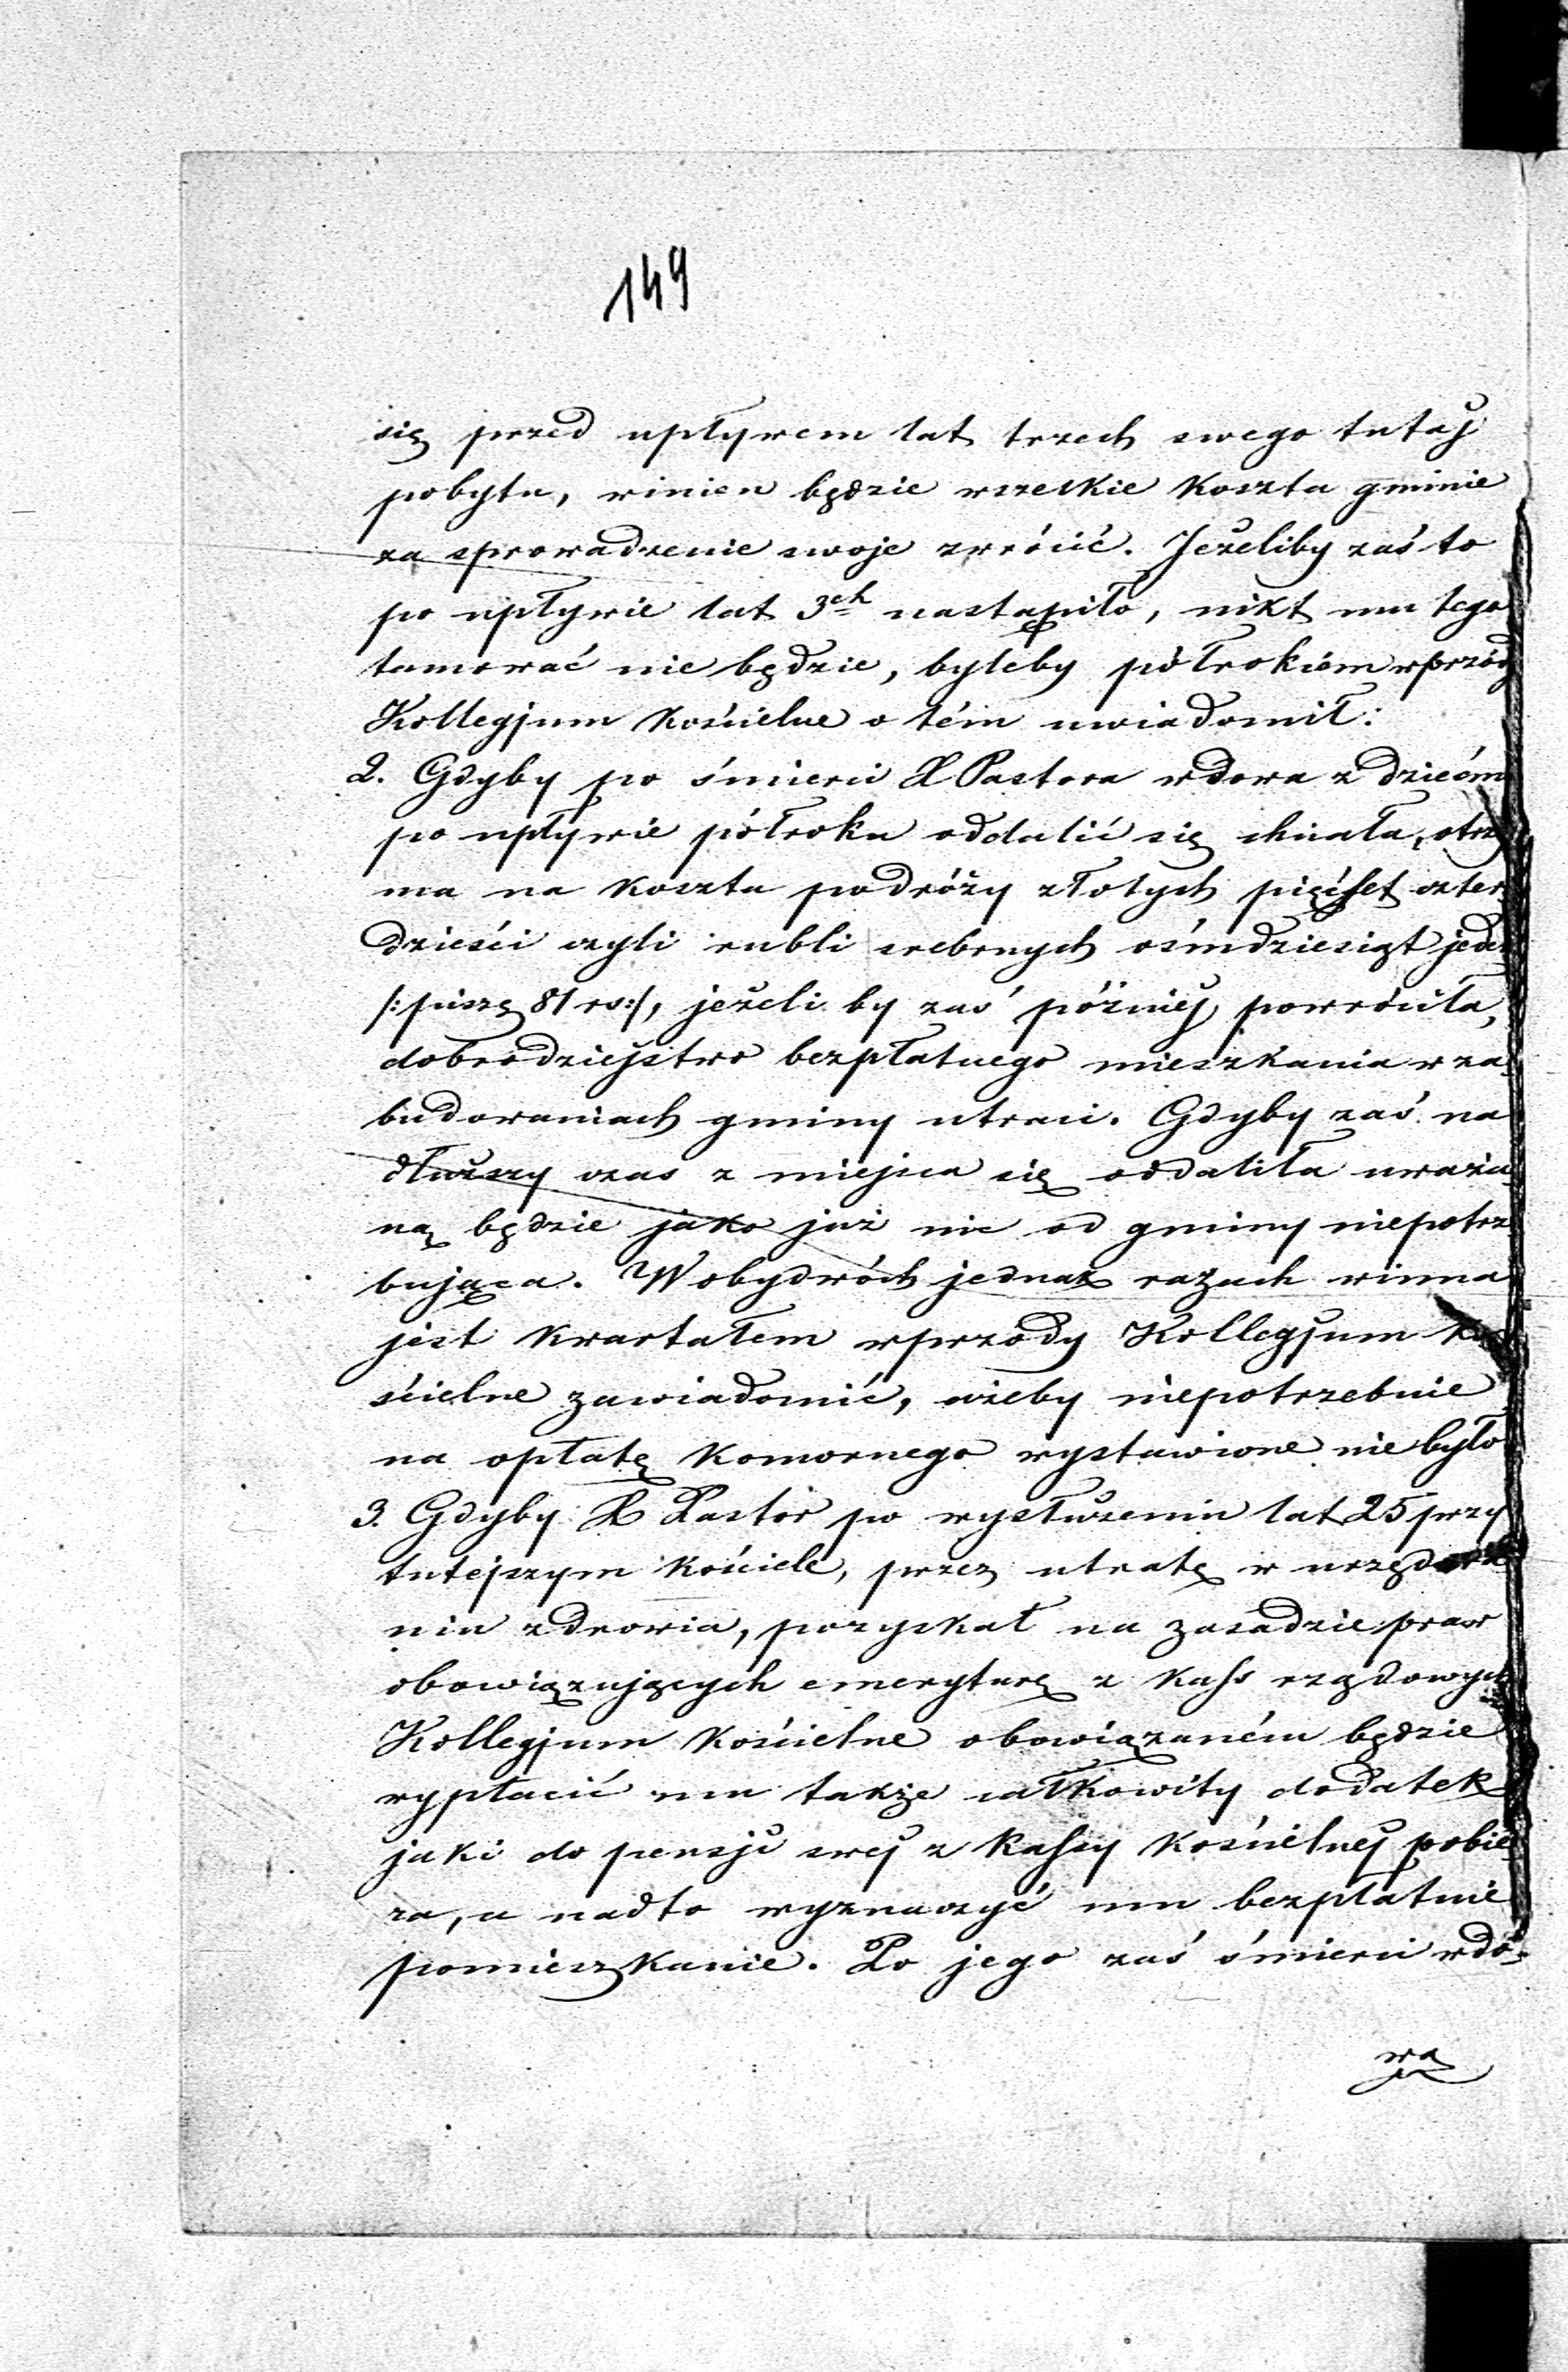 149
się przed upływem lat trzech swego tutaj
pobytu, winien będzie wszelkie koszta gminie
za sprowadzenie swoje zwrócić. Jeżeliby zaś to
po upływie lat 3ch nastąpiło, nikt mu tego
tamować nie będzie, byleby półrokiem wprzódy
Kollegjum Kościelne o tém uwiadomił:
2. Gdyby po śmierci X Pastora wdowa z dziećmi
po upływie półroku oddalić się chciała, otrzy
ma na koszta podróży złotych pięćset czter
dzieści czyli rubli srebrnych ośmdziesiąt jeden
/:piszę 81 rs:/, jeżeli by zaś później powróciła,
dobrodziejstwo bezpłatnego mieszkania w za
budowaniach gminy utraci. Gdyby zaś na
dłuższy czas z miejsca się oddaliła uważa
ną będzie jako już nic od gminy niepotrze
bująca. W obydwóch jednak razach winna
jest kwartałem wprzódy Kollegjum Ko
ścielne zawiadomić, ażeby niepotrzebnie
na opłatę komornego wystawione nie było
3. Gdyby X Pastor po wysłużeniu lat 25 przy
tutejszym kościele, przez utratę w urzędowa
niu zdrowia, pozyskał na zasadzie praw
obowiązujących emeryturę z kass rządowych
Kollegjum Kościelne obowiązaném będzie
wypłacić mu także całkowity dodatek
jaki do pensji swej z Kassy Kościelnej pobie
ra, a nadto wyznaczyć mu bezpłatnie
pomieszkanie. Po jego zaś śmierci wdo-
wa